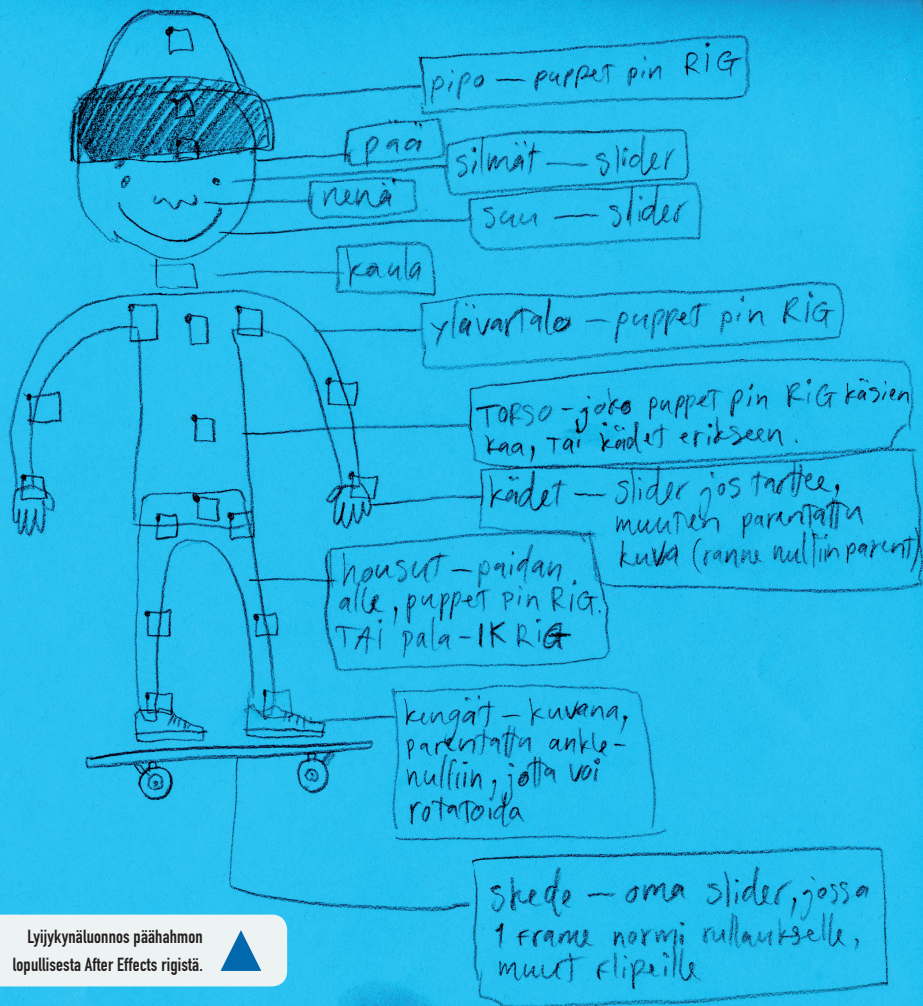 pipo — puppet pin RiG
pää
silmät — slider
nenä
suu — slider
kaula
ylävartalo — puppet pin RiG
TORSO - joko puppet pin RiG käsien
kaa, TAi kädet erikseen.
kädet — slider jos tarttee,
muuten parentattu
kuva (ranne nulliin parent)
housut — paidan
alle, puppet pin RiG.
TAi pala - IK RiG
kengät — kuvana,
parentattu ankle-
nulliin, jotta voi
rotatoida
skede — oma slider, jossa
1 frame normi rullaukselle,
muut flipeille
Lyijykynäluonnos päähahmon
lopullisesta After Effects rigistä.